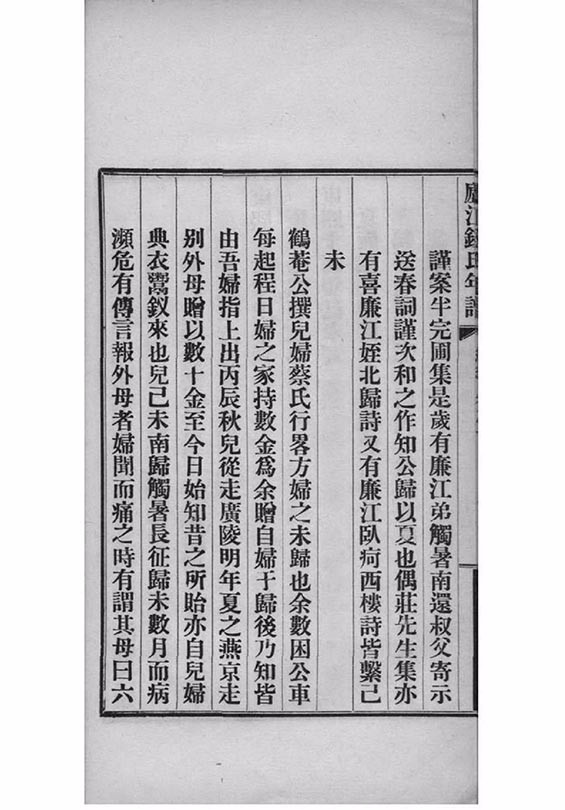 廬江錢氏年譜
謹案半完圃集是歲有廉江弟觸暑南還叔父寄示
送春詞謹次和之作知公歸以夏也偶莊先生集亦
有喜廉江姪北歸詩又有廉江臥疴西樓詩皆繫己
未
鶴菴公撰兒婦蔡氏行畧方婦之未歸也余數困公車
每起程日婦之家持數金爲余贈自婦于歸後乃知皆
由吾婦指上出丙辰秋兒從走廣陵明年夏之燕京走
别外母贈以數十金至今日始知昔之所貽亦自兒婦
典衣鬻釵來也兒己未南歸觸暑長征歸未數月而病
瀕危有傳言報外母者婦聞而痛之時有謂其母曰六